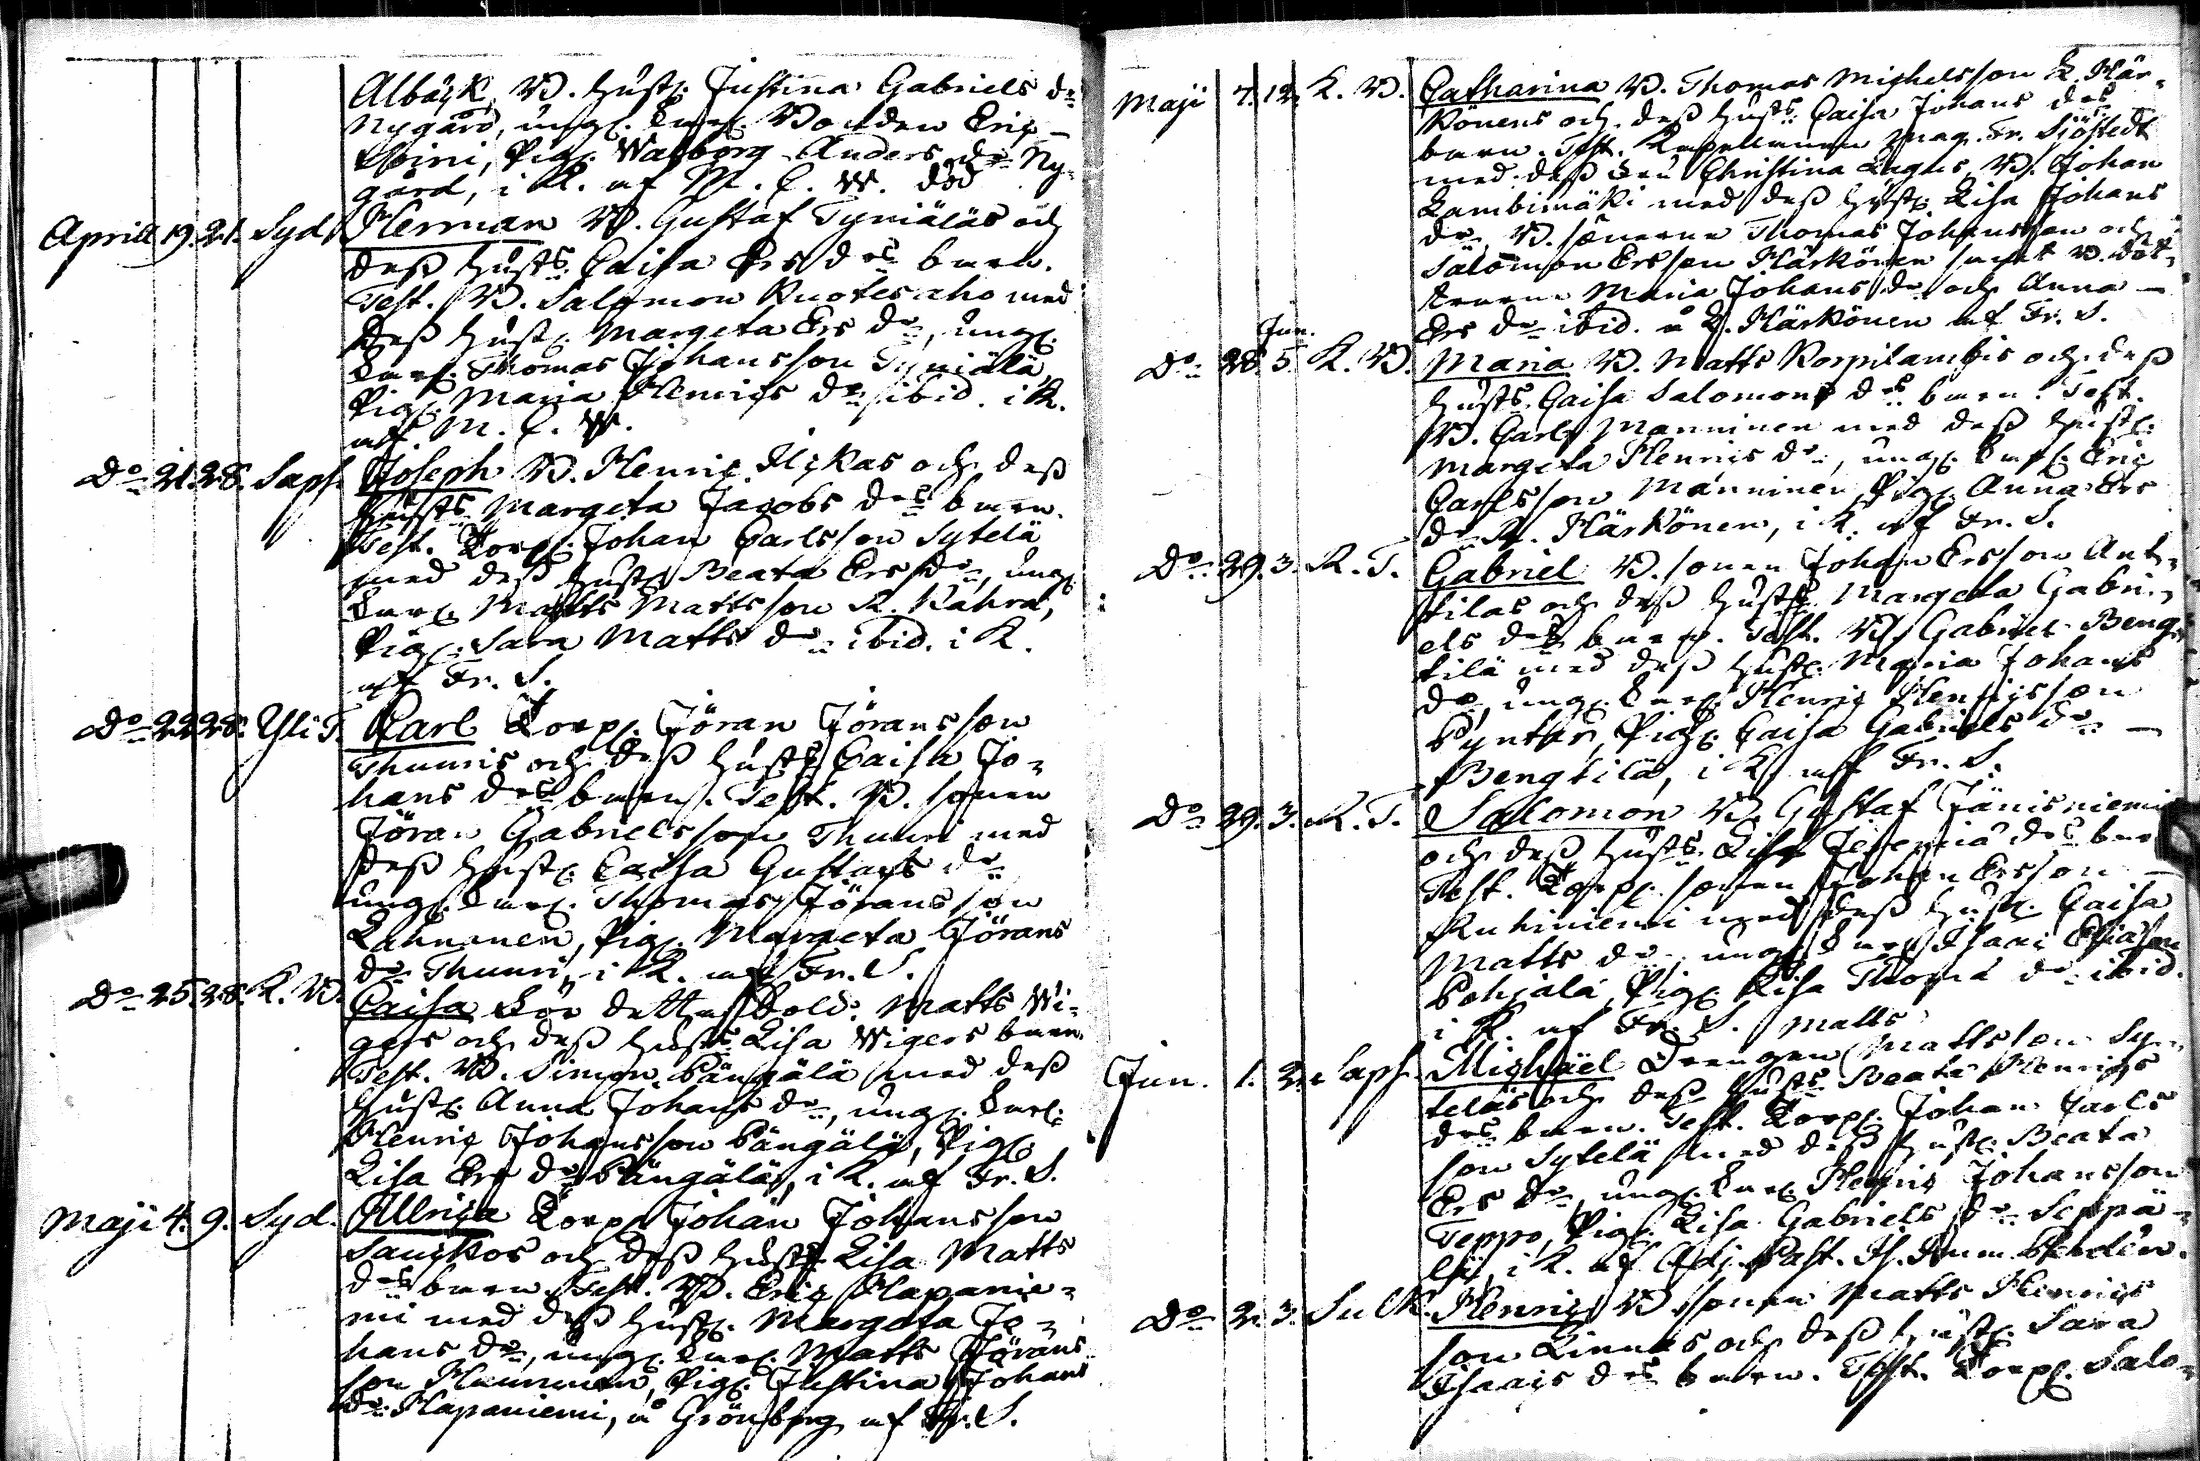 Albäck, B. hustr. Justina Gabriels dr
Nygård, ungk. Bonden Eric
Loini, Pig. Walborg Anders dr Ny-
gård, i K. af M. C. W. död
Aprill 19. 21. Syd. Herman B. Gustaf Tyniäläs och
dess hustrs Caisa Ers drs barn.
Test. B. Salomon Kuotesaho med
dess hustr. Margeta Ers dr, ungk.
Drag. Thomas Johansson Tyniälä,
Pig. Maria Henrics dr ibid. i K.
af M. C. W.
Do 21. 28. Saps. Joseph B. Henric Ilckas och dess
hustrs Margeta Jacobs drs barn.
Test. Torp. Johan Carlsson Sytelä
med dess hustr. Beata Ers dr, ungk.
Matts Mattsson K. Kahra,
Pig. Sara Matts dr ibid. i K.
af Fr. S.
Do 22 28. Yli T. Carl Torp. Jöran Jöransson
Thuuris och dess hustrs Caisa Jo-
hans drs barn. Test. B. sonen
Jöran Gabrielsson Thuuri med
dess hustr. Caisa Gustafs dr
ungk. Thomas Jöransson
Lahnanen, Pig. Margeta Jörans
dr Thuuri, i K. af Fr. S.
Do 25. 28. K. B. Caisa Sold. Matts Wi-
gers och dess hustrs Lisa Wigers barn.
Test. B. Simon Pängälä med dess
hustr. Anna Johans dr, ungk.
Henric Johansson Pängälä, Pig.
Lisa Ers dr Pängälä, i K. af Fr. S.
Maji 4. 9. Syd. Ullrica Torp. Johan Johansson
Sauckos och dess hustrs Lisa Matts
drs barn. Test. B. Eric Hapanie-
mi med dess hustr. Margeta Jo-
hans dr, ungk. Matts Jörans
son Hauninen, Pig. Justina Johans
dr Hapaniemi, å Grönberg af Fr. S.
Maji 7. 12. K. B. Catharina B. Thomas Michelsson L. Här-
könens och dess hustrs Caisa Johans drs
barn. Test. Kapellanen Mag. Fr. Sjöstedt
med dess Fru Christina Lughs, B. Johan
Lambimäki med dess hustr. Lisa Johans
dr, B. sönerne Thomas Johansson och
Salomon Ersson Härkönen samt B. döt-
trarne Maria Johans dr och Anna
Ers dr ibid. å L. Härkönen af Fr. S.
Jun.
Do 28. 5. K. B. Maria B. Matts Korpilambis och dess
hustrs Caisa Salomons drs barn. Test.
B. Carl Manninen med dess hustr.
Margeta Henrics dr, ungk. Eric
Carlsson Manninen, Pig. Anna Ers
dr K. Härkönen, i K. af Fr. S.
Do 29. 3. K. T. Gabriel B. sonen Johan Ersson Ant-
tilas och dess hustrs Margeta Gabri-
els drs barn. Test. B. Gabriel Beng-
tilä med dess hustr. Maria Johans
dr, ungk. Henric Henricsson
Pyntäri, Pig. Caisa Gabriels dr
Bengtilä, i K. af Fr. S.
Do 29. 3. K. T. Salomon B. Gustaf Jänisniemis
och dess hustrs Lisa Jeremiæ drs barn
Test. Torp. sonen Johan Ersson
Ruhiniemi med dess hustr. Caisa
Matts dr, ungk. Isaac Esaiasson
Pohjala, Pig. Lisa Thomæ dr ibid.
i K. af Fr. S. Matts
Jun. 1. 2. Saps. Michaël Drengen Mattsson Sy-
teläs och dess hustrs Beata Henrics
drs barn. Test. Torp. Johan Carls
son Sytelä med dess hustr. Beata
Ers dr, ungk. Henric Johansson
Teppo, Pig. Lisa Gabriels dr Seppä-
lä, i K. af Adj. Past.
Do 2. 3. Sulk. Henric B. sonen Matts Henrics
son Linnas och dess hustr. Sara
Isaacs drs barn. Test. Torp. Salo-